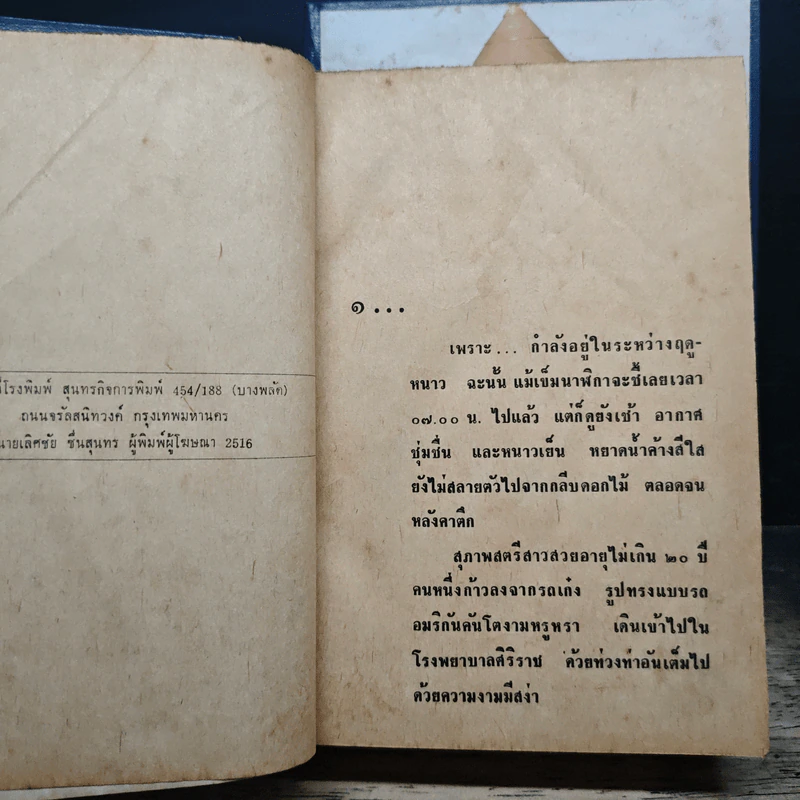 โรงพิมพ์ สุนทรกิจการพิมพ์ 454/188 (บางพลัด)
ถนนจรัลสนิทวงศ์ กรุงเทพมหานคร
นายเลิศชัย ชื่นสุนทร ผู้พิมพ์ผู้โฆษณา 2516
๑...
เพราะ... กำลังอยู่ในระหว่างฤดู-
หนาว ฉะนั้น แม้เข็มนาฬิกาจะชี้เลยเวลา
๐๗.๐๐ น. ไปแล้ว แต่ก็ดูยังเช้า อากาศ
ชุ่มชื่น และหนาวเย็น หยาดน้ำค้างสีใส
ยังไม่สลายตัวไปจากกลีบดอกไม้ ตลอดจน
หลังคาตึก
สุภาพสตรีสาวสวยอายุไม่เกิน ๒๐ ปี
คนหนึ่งก้าวลงจากรถเก๋ง รูปทรงแบบรถ
อมริกันคันโตงามหรูหรา เดินเข้าไปใน
โรงพยาบาลศิริราช ด้วยท่วงท่าอันเต็มไป
ด้วยความงามมีสง่า